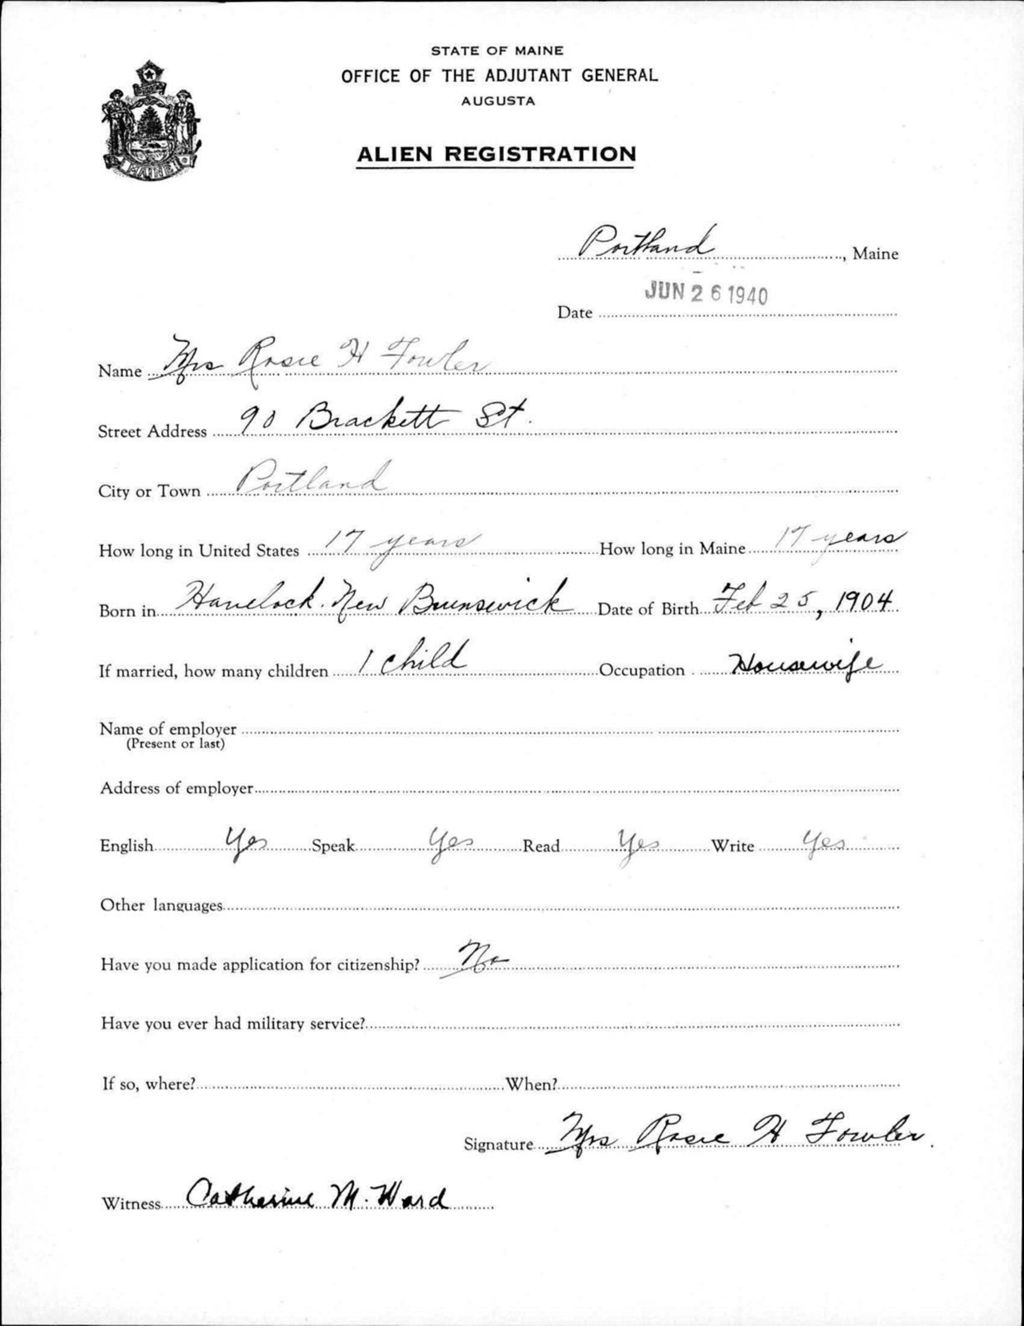 STATE OF MAINE
OFFICE OF THE ADJUTANT GENERAL
AUGUSTA
ALIEN REGISTRATION
MAINE
Portland, Maine
Date JUN 26 1940
Name Mrs Rosie H Fowler
Street Address 90 Brackett St.
City or Town Portland
How long in United States 17 years How long in Maine 17 years
Born in Havelock. New Brunswick Date of Birth Feb 25, 1904
If married, how many children 1 child Occupation Housewife
Name of employer
(Present or last)
Address of employer
English Yes Speak Yes Read Yes Write Yes
Other languages
Have you made application for citizenship? No
Have you ever had military service?
If so, where? When?
Signature Mrs Rosie H Fowler.
Witness Catherine M. Ward